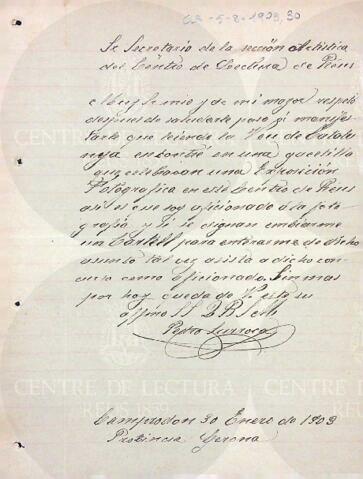 Sr Secretario de la sección Artistica
del Centro de Lectura de Reus
Muy Sr mio y de mi mayor respeto
despues de saludarle paso á manifes
tarle que leiendo la Veu de Catalu
nya encontré en una gacetilla
que celebraban una Exposición
Fotografica en este Centro de Reus
asi es que soy aficionado á la foto
grafia y si se dignan embiarme
un Cartell para enterarme de dicho
asunto tal vez asista a dicho con
curso como aficionado. Sin mas
por hoy queda de V. este su
affmo S S Q B S M
Pedro
Camprodon 30 Enero de 1903
Provincia Gerona
CENTRE DE LECTURA
REUS 1859